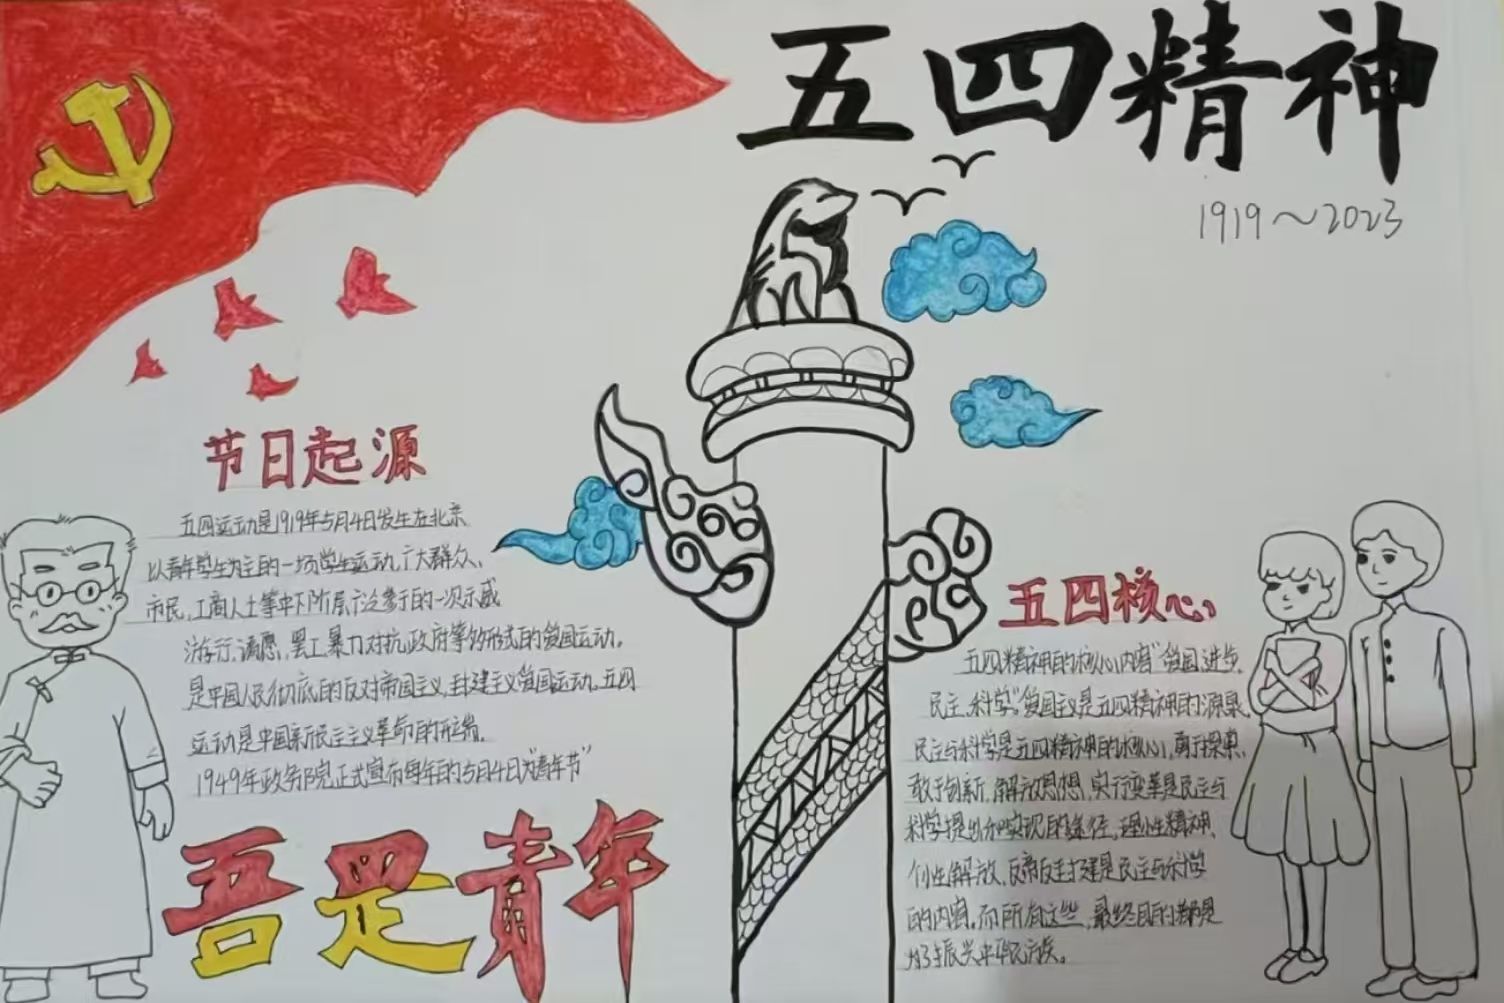 五四精神
1919～2023
节日起源
五四运动是1919年5月4日发生在北京
以青年学生为主的一场学生运动,广大群众、
市民,工商人士等中下阶层广泛参于的一次示威
游行,请愿,罢工暴力对抗政府等多形式的爱国运动。
是中国人民彻底的反对帝国主义,封建主义爱国运动。五四
运动是中国新民主主义革命的开端。
1949年政务院正式宣布每年的5月4日为"青年节"
吾是青年
五四核心
五四精神的核心内容"爱国、进步、
民主、科学"爱国主义是五四精神的源泉,
民主与科学是五四精神的核心,勇于探索、
敢于创新,解放思想,实行变革是民主与
科学提出和实现的途径,理性精神、
个性解放,反帝反封建是民主与科学
的内容。而所有这些,最终目的都是
为了振兴中华民族。